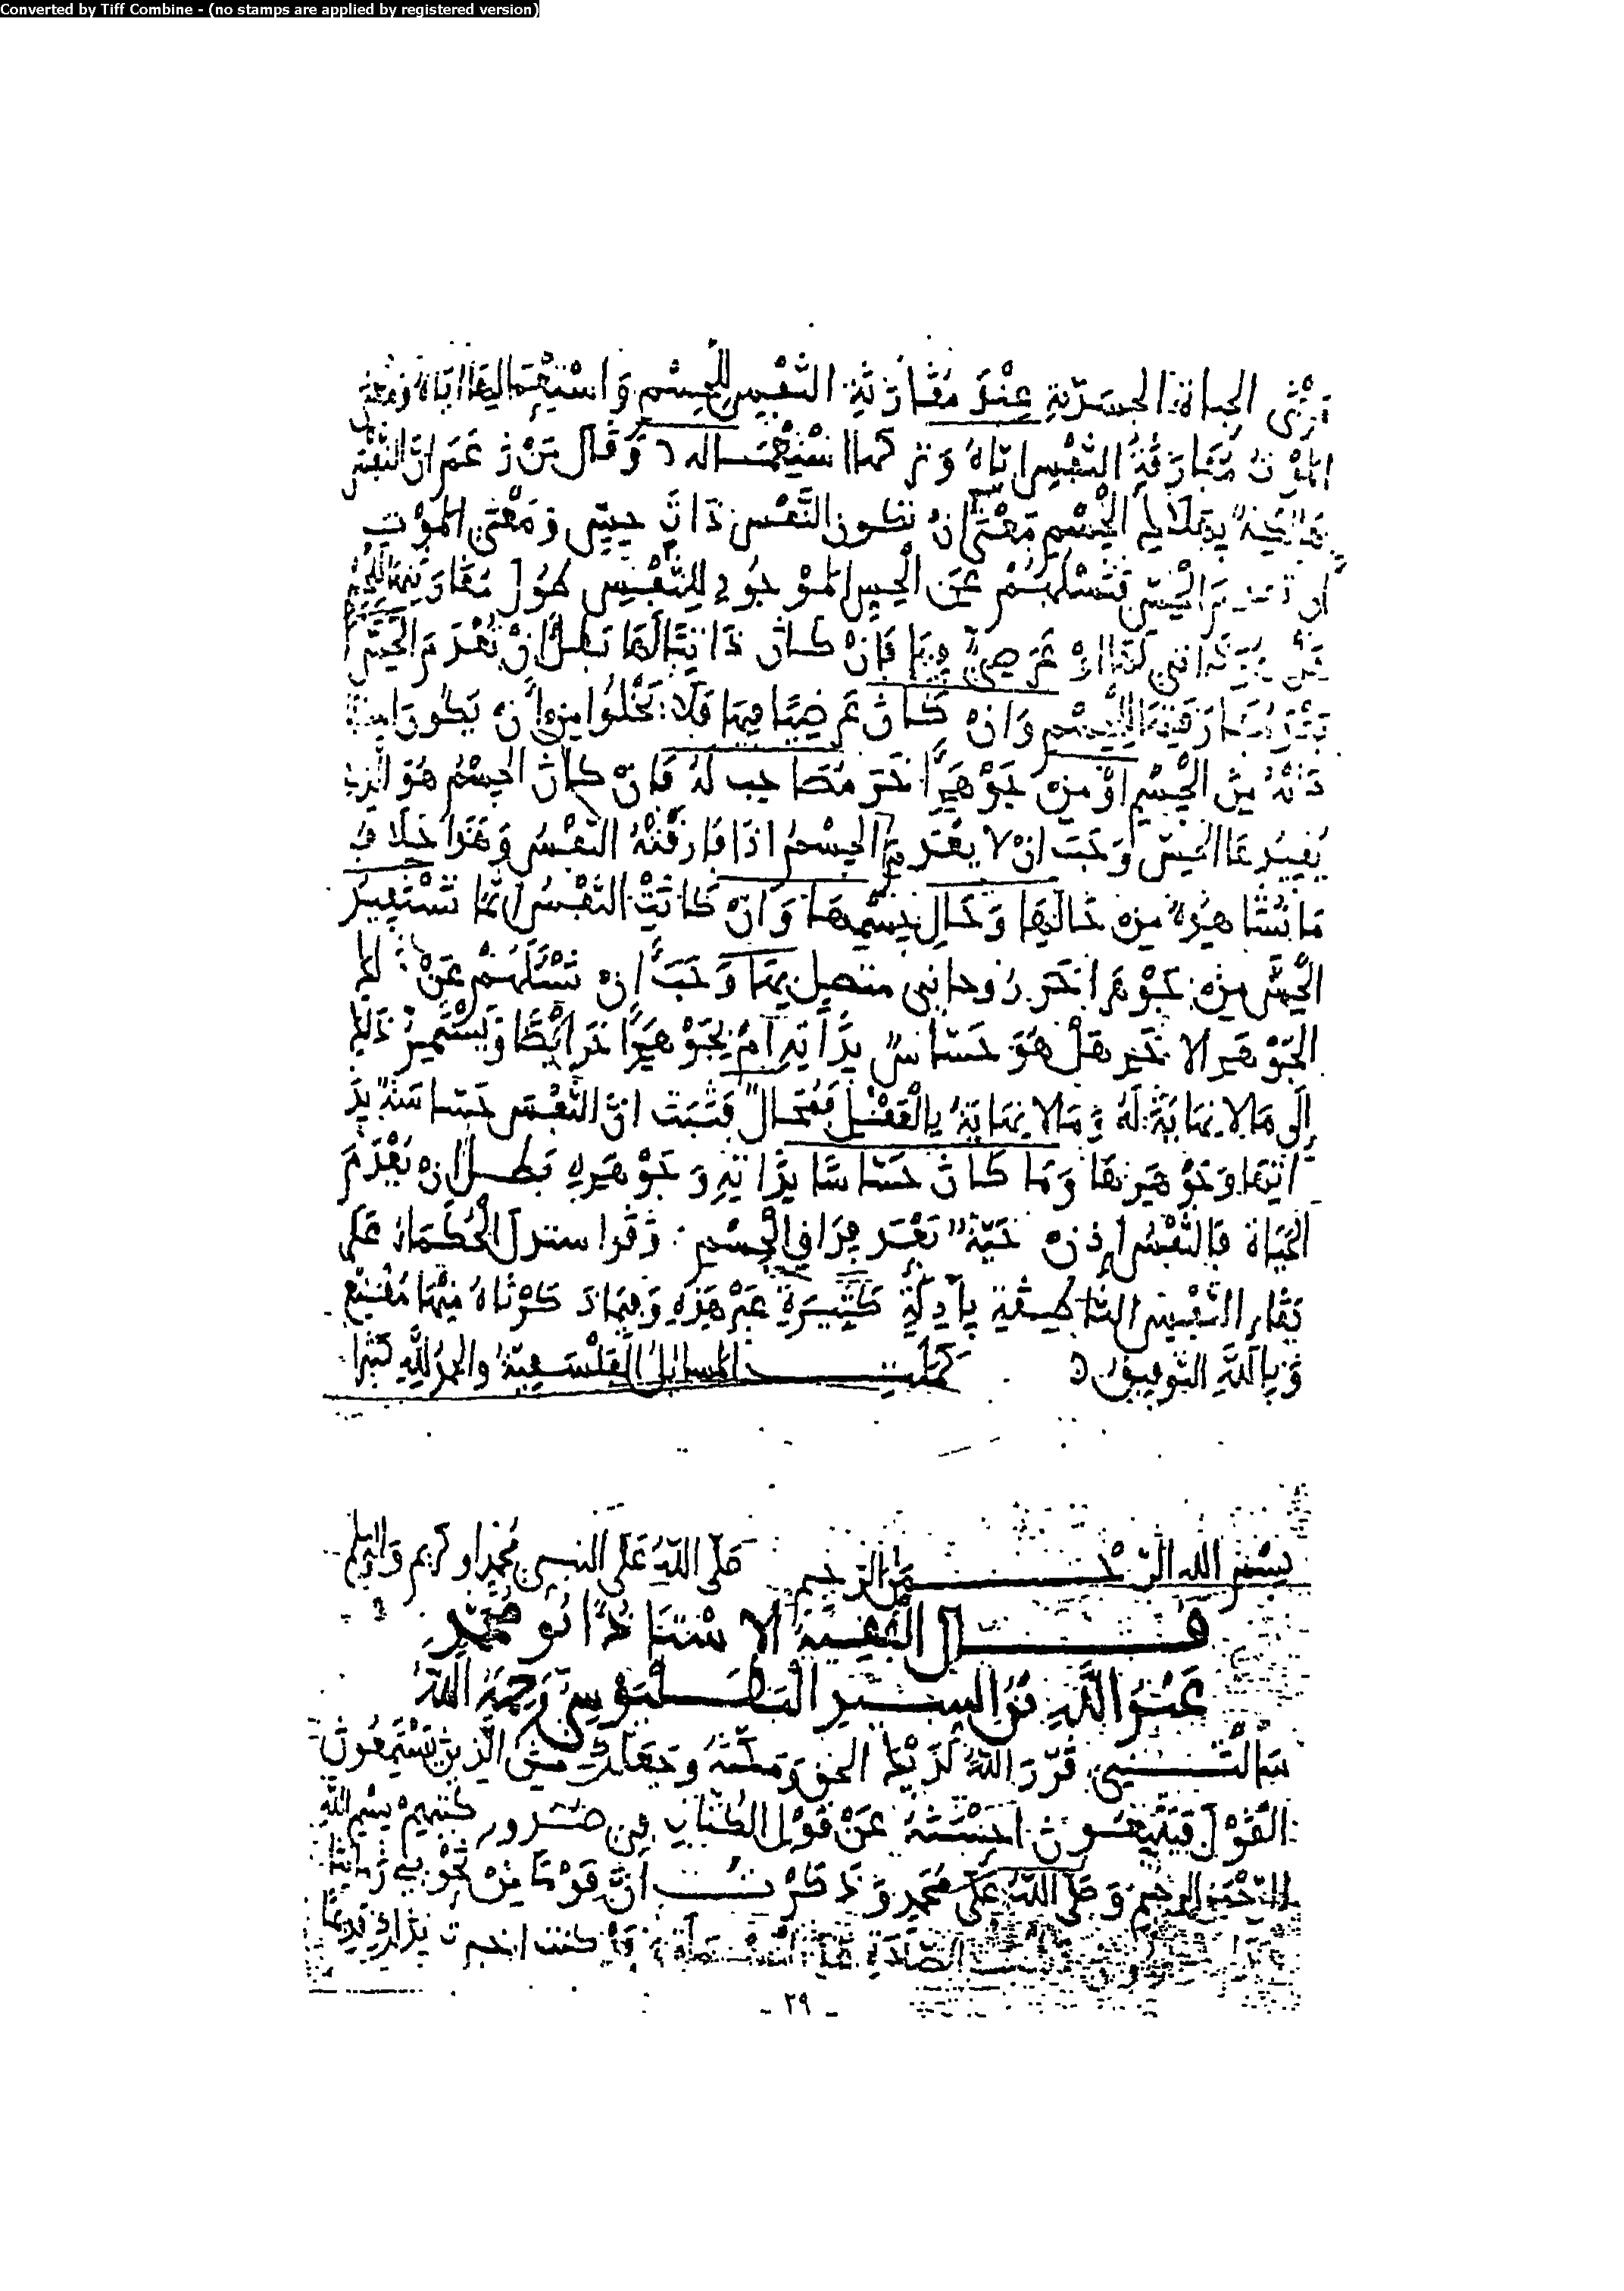 Converted by Tiff Combine - (no stamps are applied by registered version)
الحياة الجسدية عِنْدَ مُقَارَنَةِ النَّفْسِ لِلْجِسْمِ وَاسْتِعْمَالِهَا اِيَّاهُ وَمَعْنَى
المَوْتِ مُفَارَقَةُ النَّفْسِ اِيَّاهُ وَتَرْكهَا اسْتِعْمَالَه وَقَالَ مَنْ زَعَمَ انَّ النَّفْسَ
الْجِسْمِ مَعْنَى انْ تكون النَّفْس ذَاتَ حِسٍّ وَمَعْنَى المَوْتِ
ان تعدم الْحِسّ فَنَسْلُهُمْ عَنِ الْحِسِّ المَوْجُودِ لِلنَّفْسِ مُقَارَنَتِهَا الْجِسْمَ
عَرَضِيٌّ فِيهَا فَانْ كَانَ ذَاتِيًّا لَهَا بَطلَ انْ تَعْدَمَ الْحِسَّ
مُفَارَقَتِهَا الْجِسْمِ وَانْ كَانَ عَرَضِيًّا فِيهَا فَلَا يَخْلُوا مِنْ أنْ يَكُونَ
مِنَ الْجِسْمِ اوْ مِنْ جَوْهَرٍ اخَرَ مُصَاحِبٍ لَهُ فَانْ كَانَ الجِسْمُ هُوَ الَّذِي
يُفِيدُهَا الحِسَّ وَجَبَ انْ لا يعْدَمَ الْجِسْمُ اذَا فَارَقَتْهُ النَّفْسُ وَهَذَا خِلَافُ
مَا نُشَاهِدُهُ مِنْ حَالِهَا وَحَالِ جِسْمِهَا وَانْ كَانَتْ النَّفْسُ اِنَّمَا تَسْتَفِيدُ
الْحِسَّ مِنْ جَوْهَرٍ اخَرَ رُوحانِي متصِل بِهَا وَجَبَ أنْ نَسْئَلَهُمْ عَنْ ذَلِكَ
الجَوْهَرِ الاخَرِ هَلْ هُوَ حَسَّاسٌ بِذَاتِهِ امْ بِجَوْهَرٍ اخَرَ ايْضًا وَيَسْتَمِرُّ ذَلِكَ
إِلَى مَا لا نِهَايَةَ لَهُ وَمَا لا نِهَايَةَ بِالْفِعْلِ فَمُحَالٌ فَثَبَتَ انَّ النَّفْسَ حَسَّاسَةٌ بِذَ
اتِهَا وَجَوْهَرِهَا وَمَا كَانَ حَسَّاسًا بِذَاتِهِ وَجَوْهَرِهِ بَطلَ انْ يَعْدَمَ
الْحَيَاةَ فَالنَّفْسُ اِذنْ حَيَّةٌ بَعْدَ فِرَاقِ الْجِسْمِ وَقَد استدل الْحُكَمَاءُ عَلَى
بَقَاءِ النَّفْسِ النَّاطِقَةِ بِأَدِلَّةٍ كَثِيرَةٍ غَيْرِ هَذِهِ وَفِيمَا ذَكَرْنَاهُ مِنْهَا مُقْنِعٌ
وَبِاللَّهِ التَّوْفِيقُ كَمُلَتِ المسائِلُ الْفَلْسَفِيَّةُ والحمدُ لِلَّهِ كثيرا
بِسْمِ الله الرَّحْمَنِ الرَّحِيمِ صَلَّى اللَّهُ عَلَى النبي مُحَمَّدٍ
قَالَ الْفَقِيهُ الاسْتَاذُ أَبُو مُحَمَّدٍ
عَبْدُ اللَّهِ بْنُ السِّيدِ الْبَطَلْيَوْسِيِّ رَحِمَهُ اللَّهُ
سَأَلْتَنِي قَرَّرَ اللَّهُ لَدَيْكَ الحق وَمَكَّنَهُ وَجَعَلَكَ مِنَ الَّذِينَ يَسْتَمِعُونَ
الْقَوْلَ فَيَتَّبِعُونَ احْسَنَهُ عَنْ قَوْلِ الكُتَّابِ فِي صُدُورِ كُتُبِهِمْ بِسْمِ اللَّهِ
الرَّحْمَنِ الرحِيمِ وَصَلَّى اللَّهُ عَلَى مُحَمَّدٍ وَذَكَرْتَ انَّ قَوْمًا مِنْ نَحْوِيِّي زَمَانِنَا
الصَّلَاةِ عَلَى كنت اخبرت بِذَلِكَ قَدِيمًا
- ٢٩ -